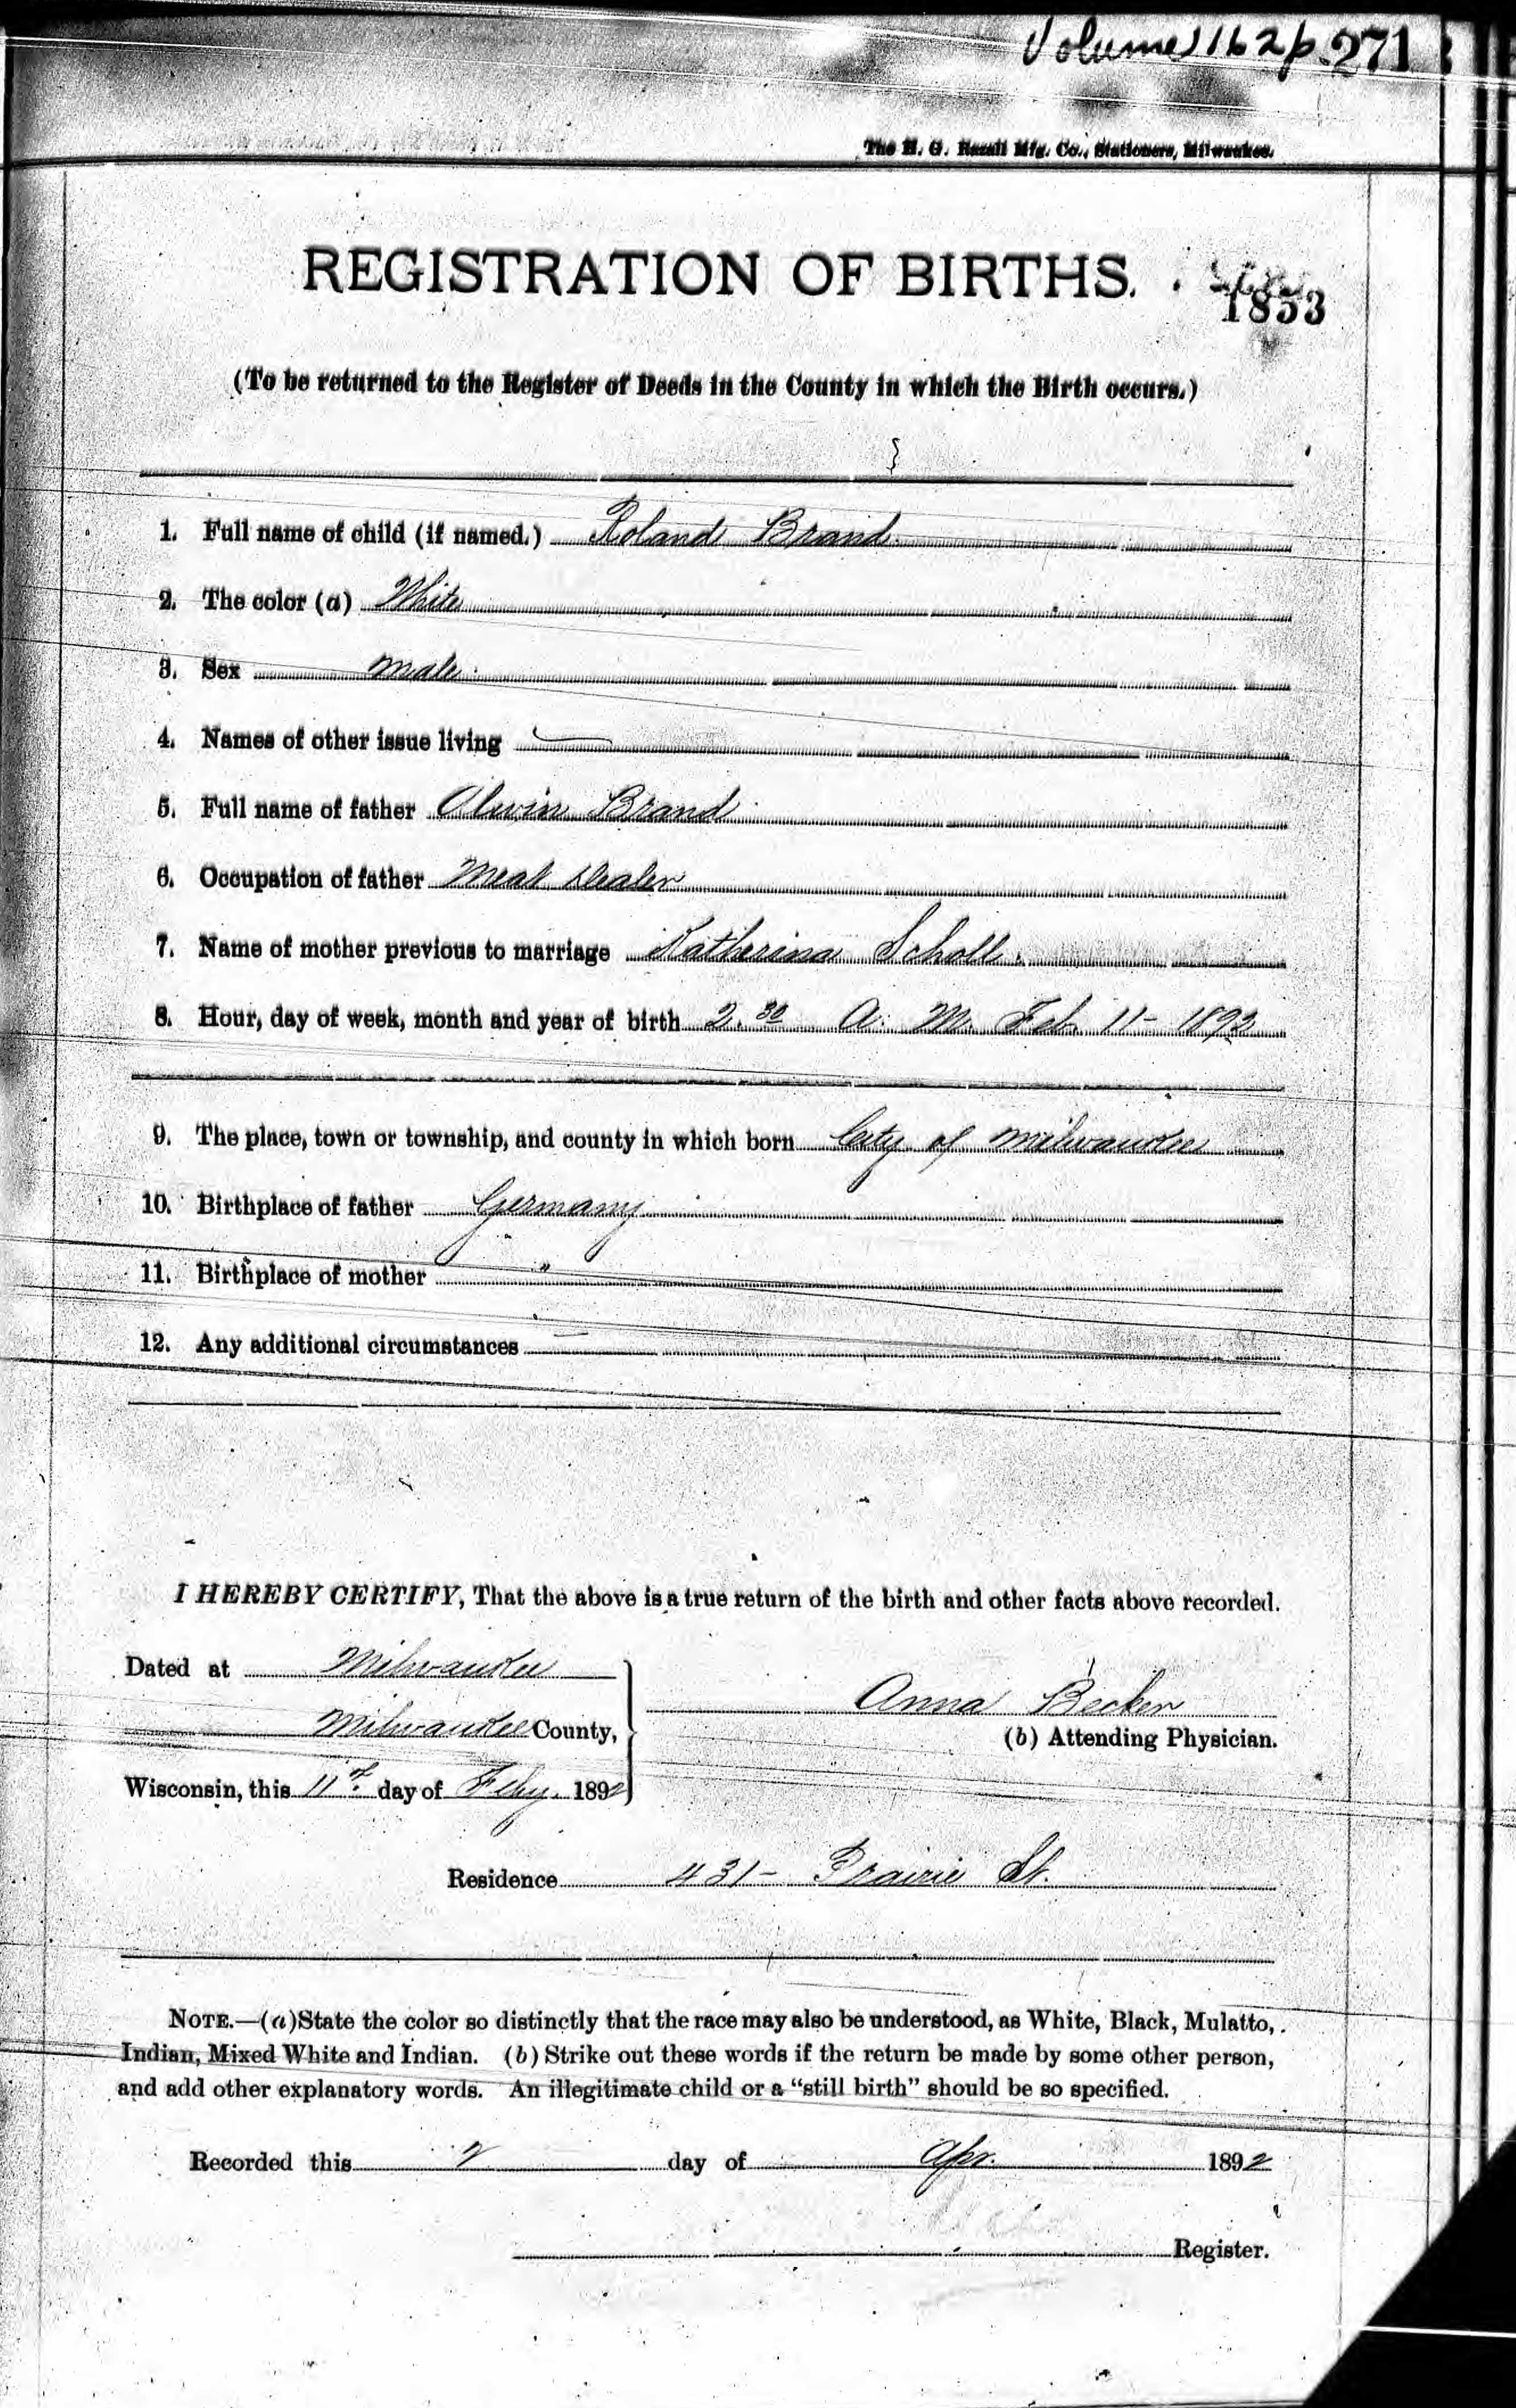 Volume 162 p. 271
The H. G. Razall Mfg. Co., Stationers, Milwaukee.
REGISTRATION OF BIRTHS.
1853
(To be returned to the Register of Deeds in the County in which the Birth occurs.)
1. Full name of child (if named.) Roland Brand
2. The color (a) White
3. Sex male
4. Names of other issue living —
5. Full name of father Alwin Brand
6. Occupation of father Meat dealer
7. Name of mother previous to marriage Katherina Scholl
8. Hour, day of week, month and year of birth 2.30 A. M. Feb. 11 - 1892
9. The place, town or township, and county in which born City of Milwaukee
10. Birthplace of father Germany
11. Birthplace of mother "
12. Any additional circumstances —
I HEREBY CERTIFY, That the above is a true return of the birth and other facts above recorded.
Dated at Milwaukee
Milwaukee County,
Anna Becker
(b) Attending Physician.
Wisconsin, this 11th day of Feby. 1892
Residence 431 - Prairie St.
NOTE.—(a) State the color so distinctly that the race may also be understood, as White, Black, Mulatto,
Indian, Mixed White and Indian. (b) Strike out these words if the return be made by some other person,
and add other explanatory words. An illegitimate child or a "still birth" should be so specified.
Recorded this 2 day of Apr. 1892
Register.